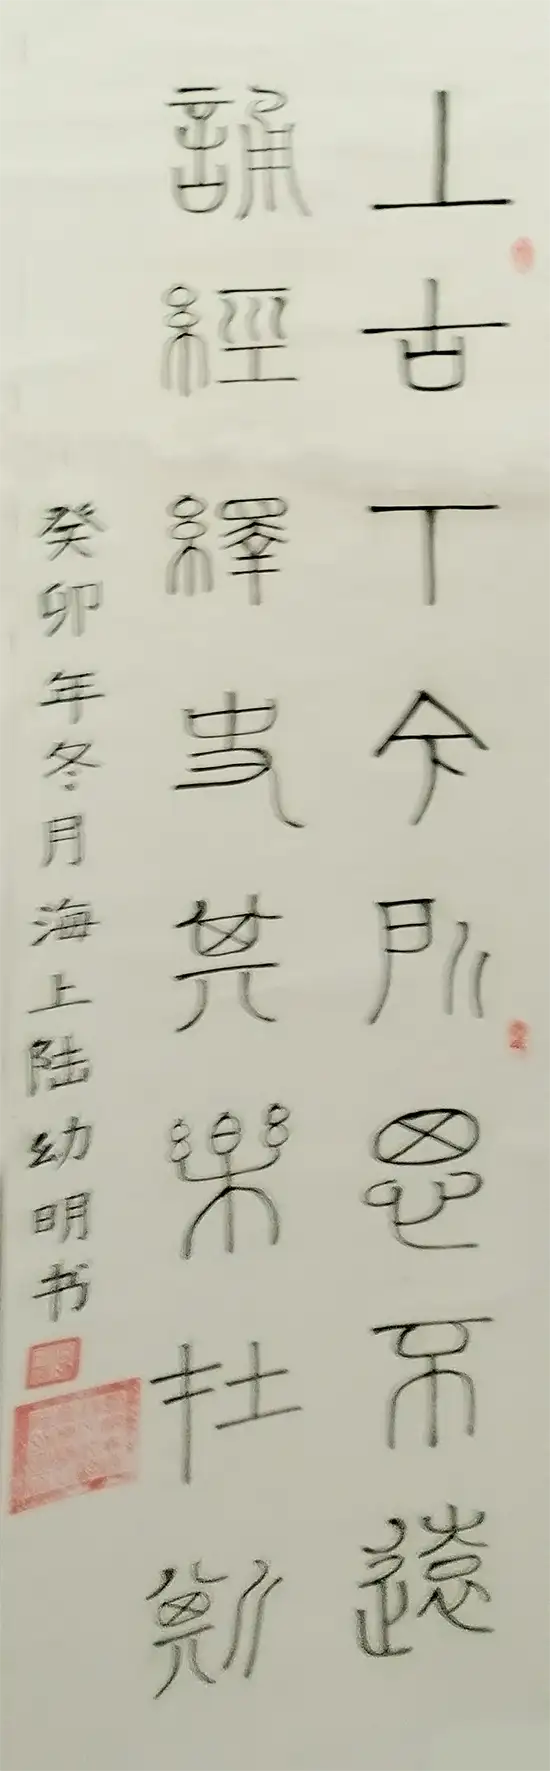 上古下今所思不遠
誦經繹史其樂在斯
癸卯年冬月海上陆幼明书